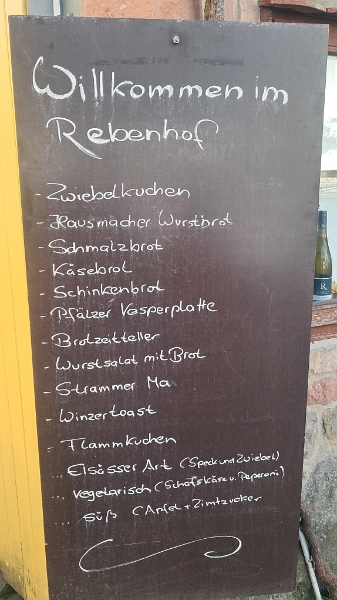 Willkommen im
Rebenhof
- Zwiebelkuchen
- Hausmacher Wurstbrot
- Schmalzbrot
- Käsebrot
- Schinkenbrot
- Pfälzer Vesperplatte
- Brotzeitteller
- Wurstsalat mit Brot
- Strammer Ma
- Winzertoast
- Flammkuchen
... Elsässer Art (Speck und Zwiebel)
... vegetarisch (Schafskäse u. Peperoni)
... süß (Apfel + Zimtzucker
R